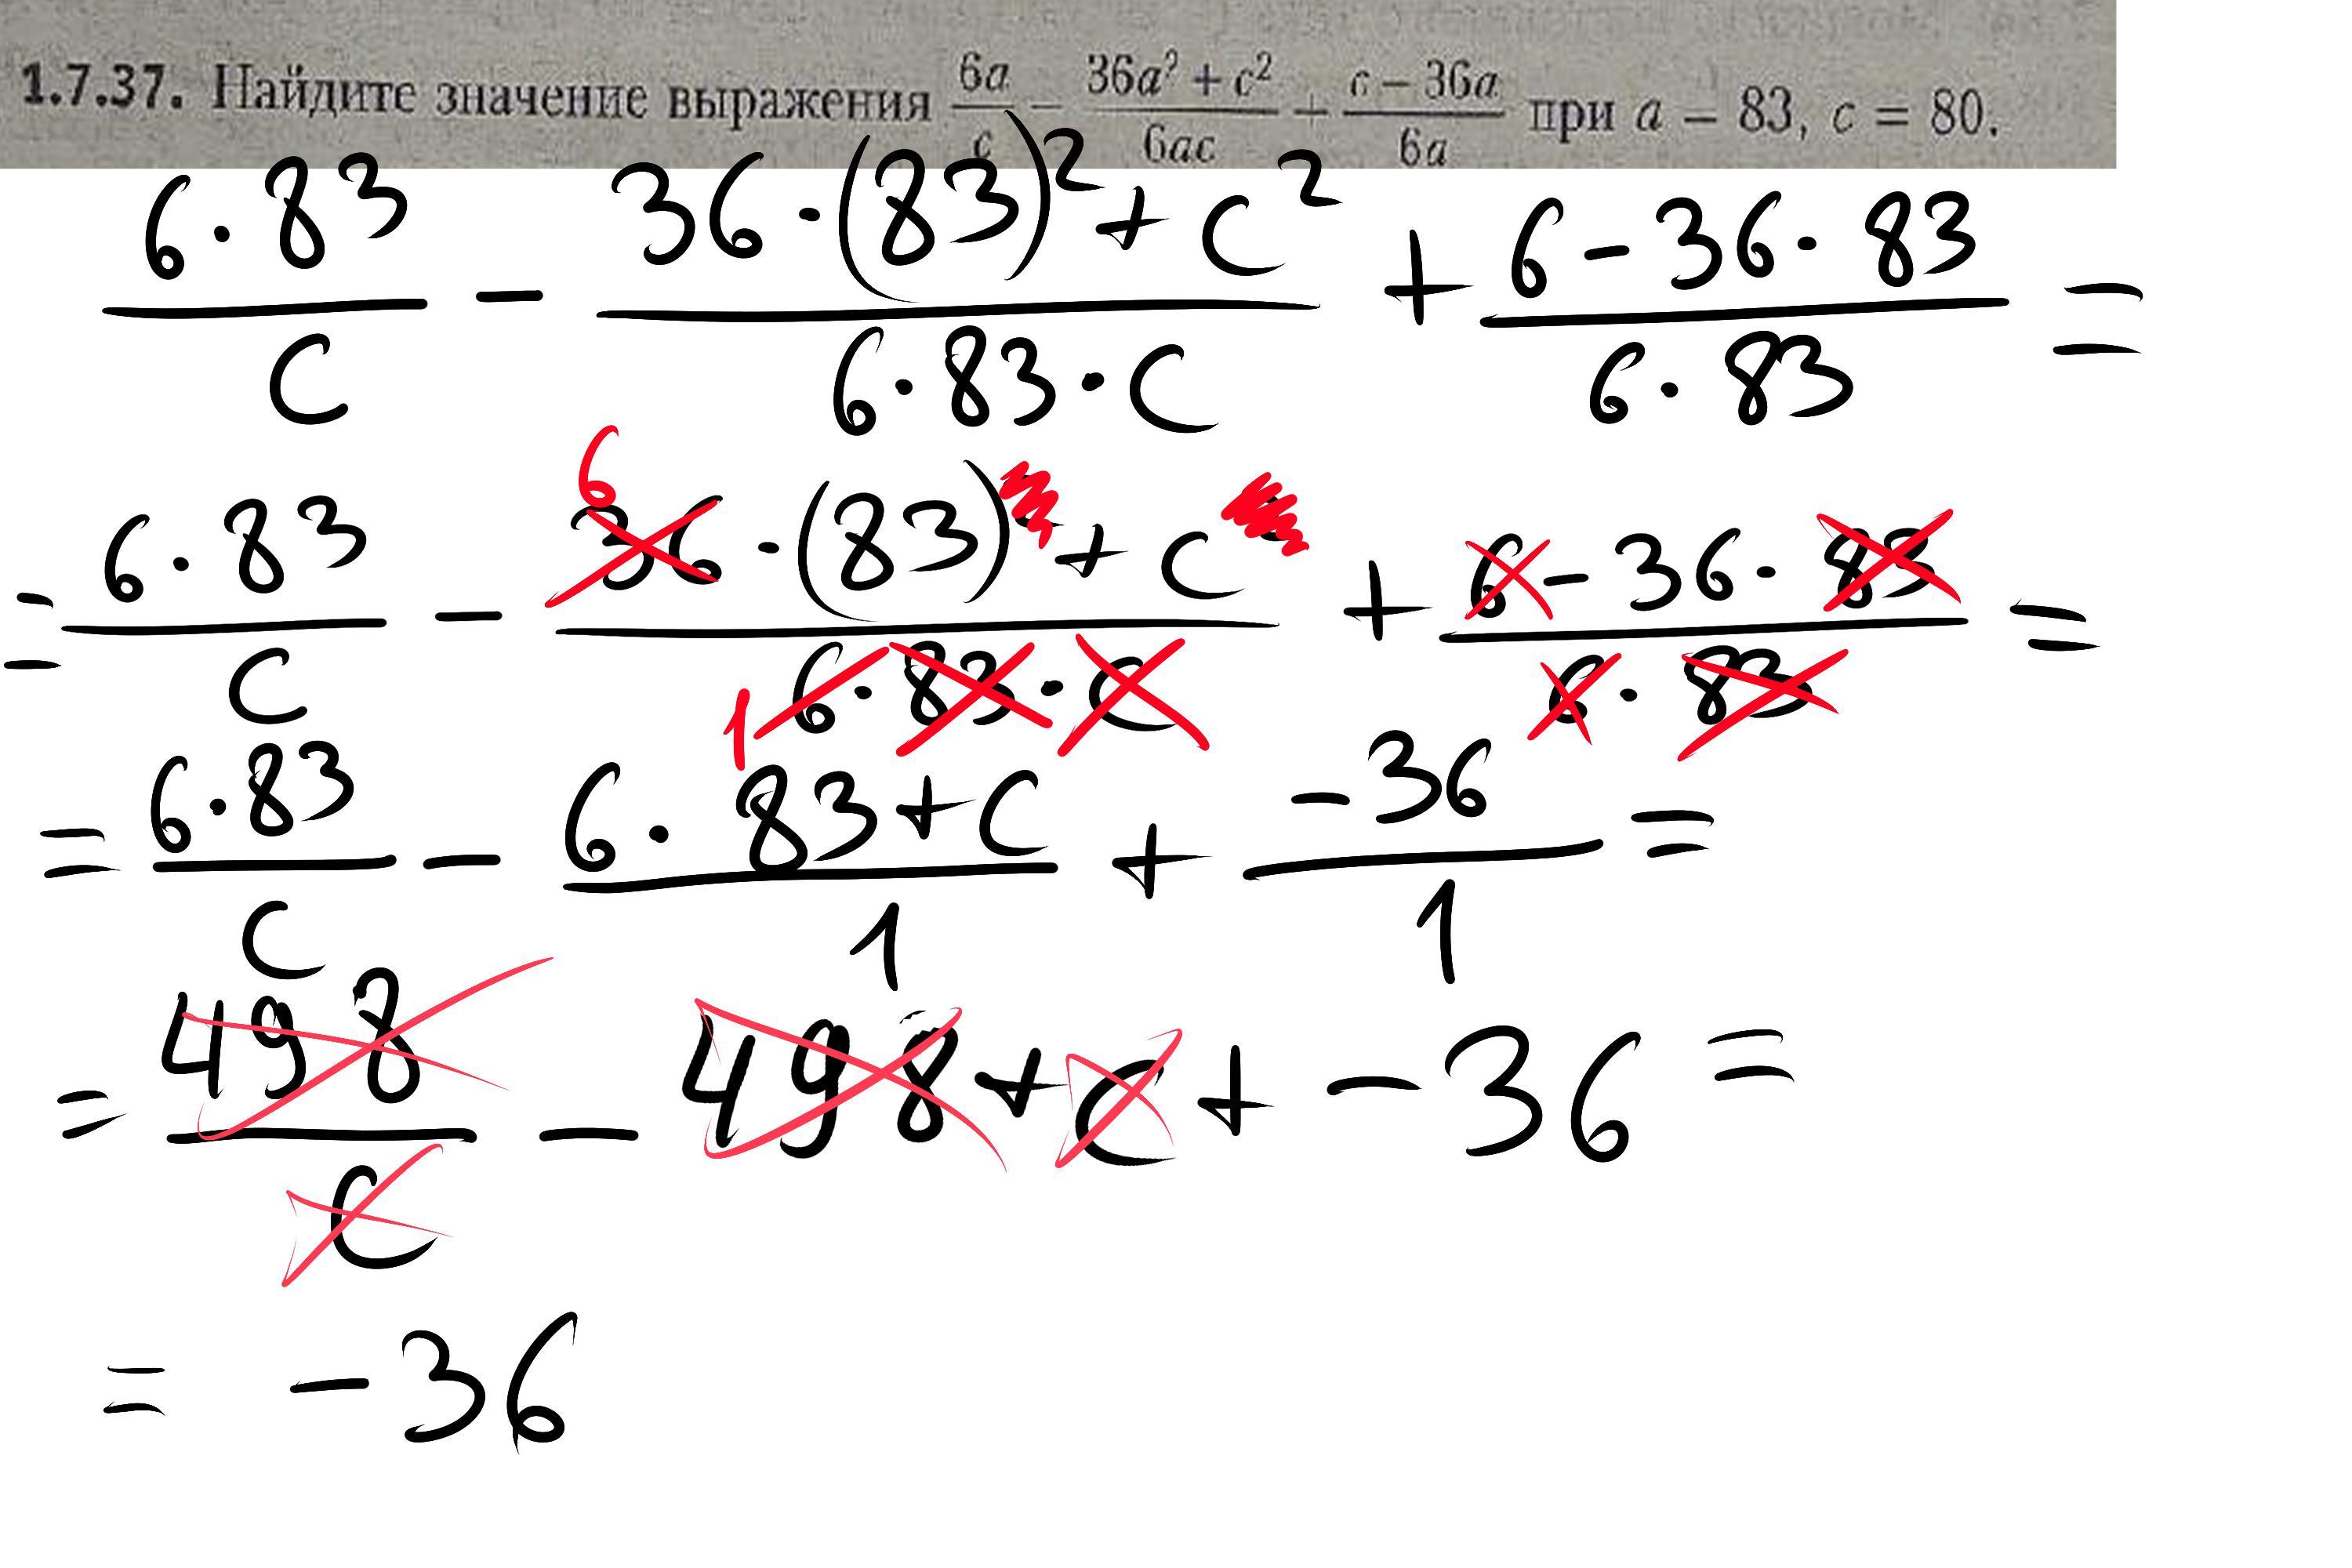 1.7.37. Найдите значение выражения 6a/c − (36a² + c²)/(6ac) + (c − 36a)/(6a) при a = 83, c = 80.
(6·83)/c − (36·(83)² + c²)/(6·83·c) + (6−36·83)/(6·83) =
= (6·83)/c − (36·(83) + c)/(6·83·c) + (6−36·83)/(6·83) =
6
1
= (6·83)/c − (6·83+c)/1 + (−36)/1 =
= 498/c − 498+c + −36 =
= −36